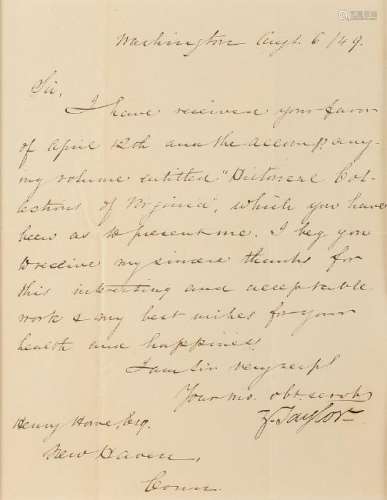 Washington Augt. 6 /49.
Sir,
I have received your favor
of April 12th and the accompany-
ing volume entitled "Historical Col-
lections of Virginia", which you have
been as to present me. I beg you
to receive my sincere thanks for
this interesting and acceptable
work & my best wishes for your
health and happiness.
I am Sir very respy
Your mo. obt. servt.
Z. Taylor
Henry Howe, Esq.
New Haven,
Conn.